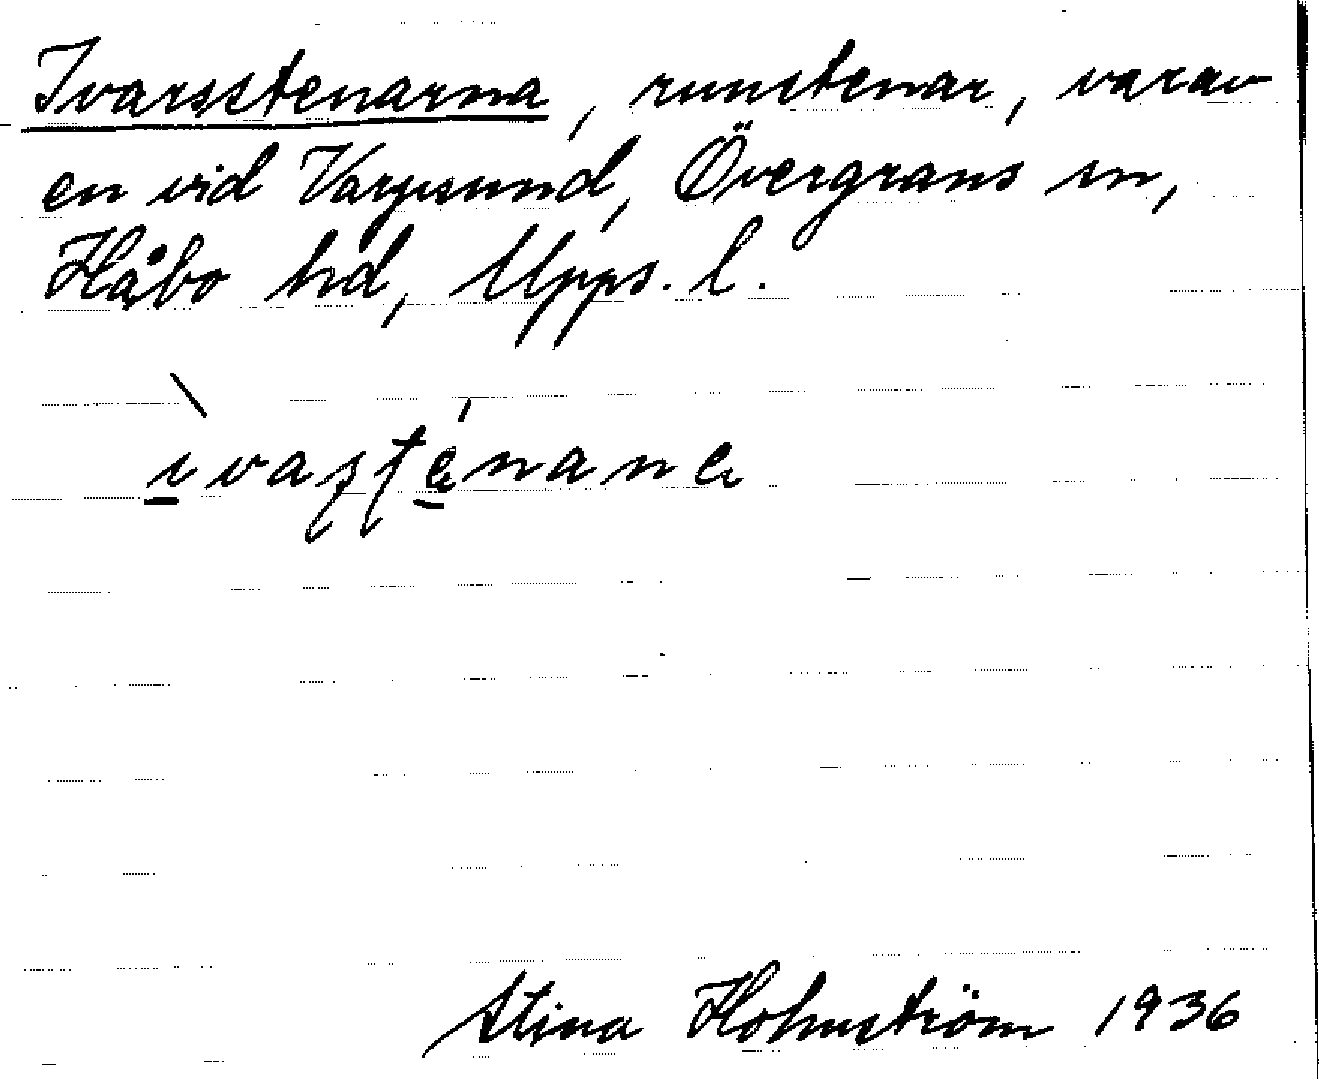 Ivarsstenarna, runstenar, varav
en vid Vargsund, Övergrans sn,
Håbo hd, Upps. l.
Stina Holmström 1936